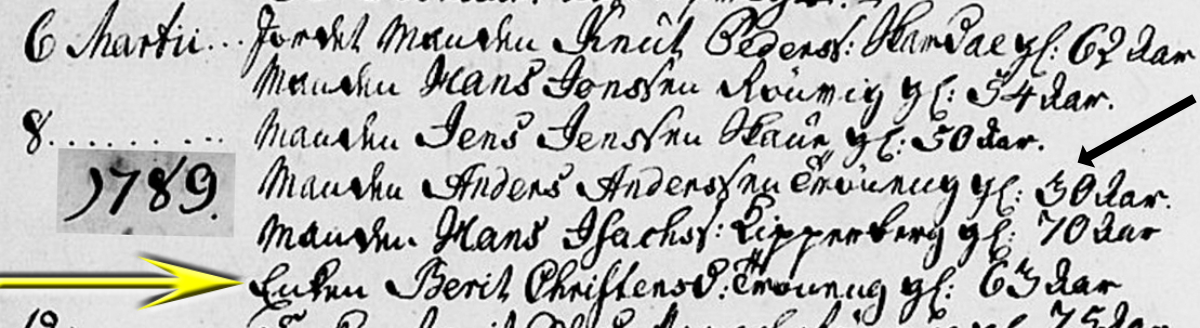 6 Martii... Jordet Manden Knut Peders: Skamdae gl: 62 aar
Manden Hans Jonssen gl: 54 aar.
8......... Manden Jens Jenssen Skaue gl: 50 aar.
1789. Manden Anders Anderssen Trøneng gl: 50 aar.
Manden Hans Isachs: Kipperberg gl: 70 aar
Enken Berit Christensd: Trøneng gl: 63 aar